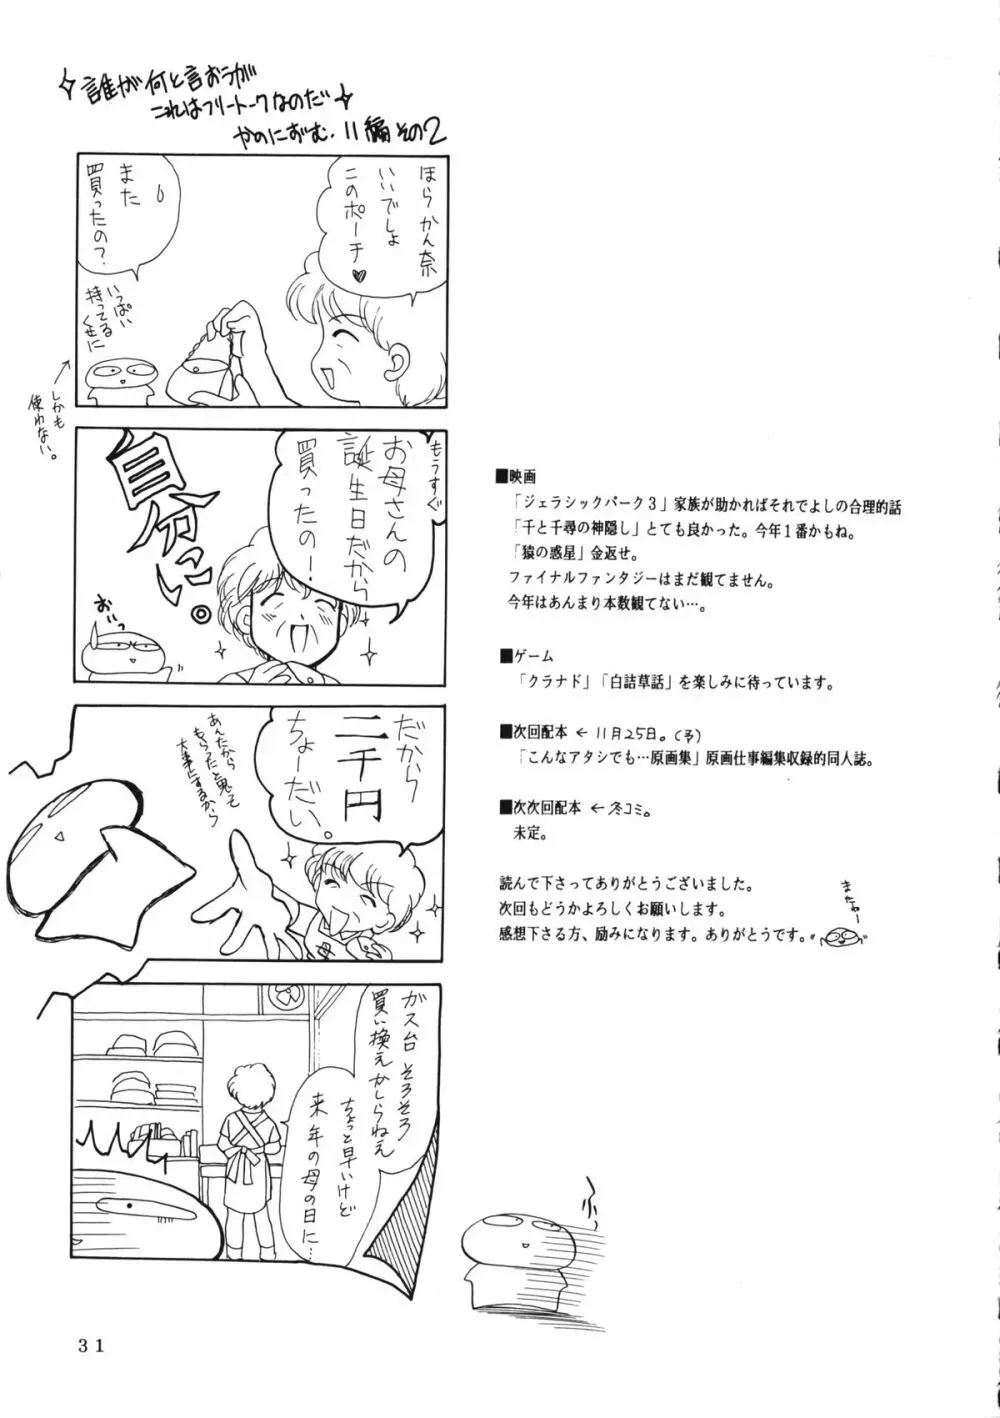 誰が何と言おうが
これはフリートークなのだ
かのにずむ.11編その2
ほらかん奈
いいでしょ
このポーチ♥
また
買ったの?
いっぱい
持ってる
くせに
しかも
使わない。
もうすぐ
お母さんの
誕生日だから
買ったの!
自分に。
おいっ
だから
二千円
ちょーだい。
あんたから
もらったと思って
大事にするから
母
ガス台そろそろ
買い換えかしらねえ
ちょっと早いけど
来年の母の日に…
■映画
「ジェラシックパーク3」家族が助かればそれでよしの合理的話
「千と千尋の神隠し」とても良かった。今年1番かもね。
「猿の惑星」金返せ。
ファイナルファンタジーはまだ観てません。
今年はあんまり本数観てない…。
■ゲーム
「クラナド」「白詰草話」を楽しみに待っています。
■次回配本 ← 11月25日。(予)
「こんなアタシでも…原画集」原画仕事編集収録的同人誌。
■次次回配本 ← 冬コミ。
未定。
読んで下さってありがとうございました。
次回もどうかよろしくお願いします。
感想下さる方、励みになります。ありがとうです。
またねー
31